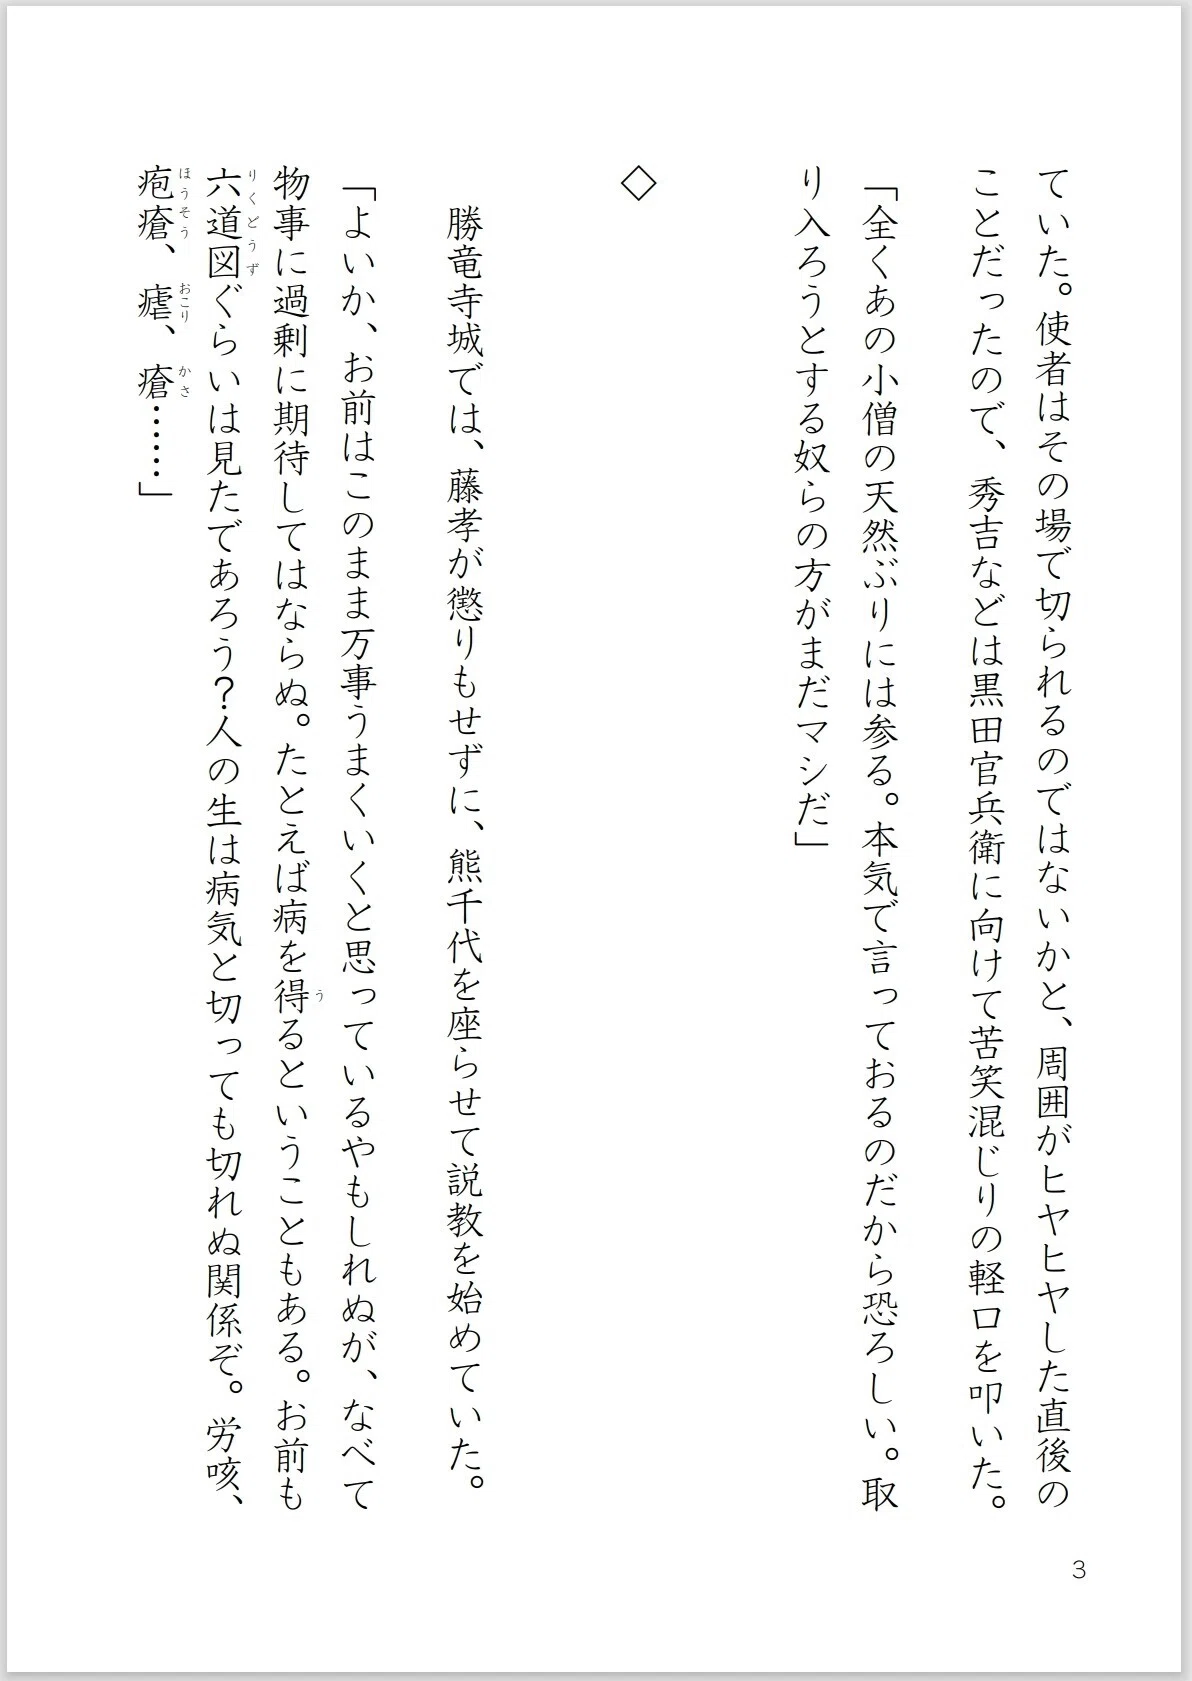 ていた。使者はその場で切られるのではないかと、周囲がヒヤヒヤした直後の
ことだったので、秀吉などは黒田官兵衛に向けて苦笑混じりの軽口を叩いた。
「全くあの小僧の天然ぶりには参る。本気で言っておるのだから恐ろしい。取
り入ろうとする奴らの方がまだマシだ」
◇
勝竜寺城では、藤孝が懲りもせずに、熊千代を座らせて説教を始めていた。
「よいか、お前はこのまま万事うまくいくと思っているやもしれぬが、なべて
物事に過剰に期待してはならぬ。たとえば病を得るということもある。お前も
う
六道図ぐらいは見たであろう？人の生は病気と切っても切れぬ関係ぞ。労咳、
りくどうず
疱瘡、瘧、瘡……」
ほうそう おこり かさ
3